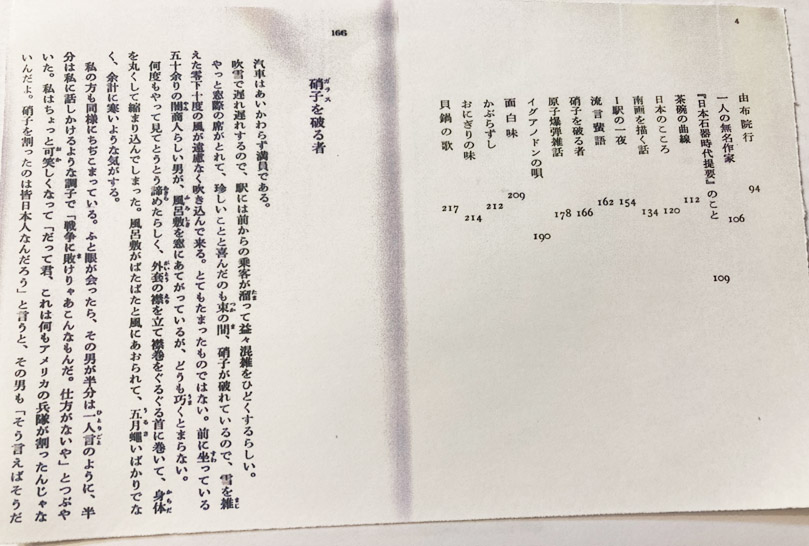 4
由布院行 94
一人の無名作家 106
『日本石器時代提要』のこと 109
茶碗の曲線 112
日本のこころ 120
南画を描く話 134
I駅の一夜 154
流言蜚語 162
硝子を破る者 166
原子爆弾雑話 178
イグアノドンの唄 190
面白味 209
かぶらずし 212
おにぎりの味 214
貝鍋の歌 217
166
硝子を破る者
ガラス
汽車はあいかわらず満員である。
吹雪で遅れ遅れするので、駅には前からの乗客が溜って益々混雑をひどくするらしい。
たま
やっと窓際の席がとれて、珍しいことと喜んだのも束の間、硝子が破れているので、雪を雑
つか ま まじ
えた零下十度の風が遠慮なく吹き込んで来る。とてもたまったものではない。前に坐っている
すわ
五十余りの闇商人らしい男が、風呂敷を窓にあてがっているが、どうも巧くとまらない。
ふろしき うま
何度もやって見てとうとう諦めたらしく、外套の襟を立て襟巻をぐるぐる首に巻いて、身体
あきら がいとう えり からだ
を丸くして縮まり込んでしまった。風呂敷がばたばたと風にあおられて、五月蠅いばかりでな
うるさ
く、余計に寒いような気がする。
私の方も同様にちぢこまっている。ふと眼が会ったら、その男が半分は一人言のように、半
ひとりごと
分は私に話しかけるような調子で「戦争に敗けりゃあこんなもんだ。仕方がないや」とつぶや
ま
いた。私はちょっと可笑しくなって「だって君、これは何もアメリカの兵隊が割ったんじゃな
おか
いんだよ。硝子を割ったのは皆日本人なんだろう」と言うと、その男も「そう言えばそうだ